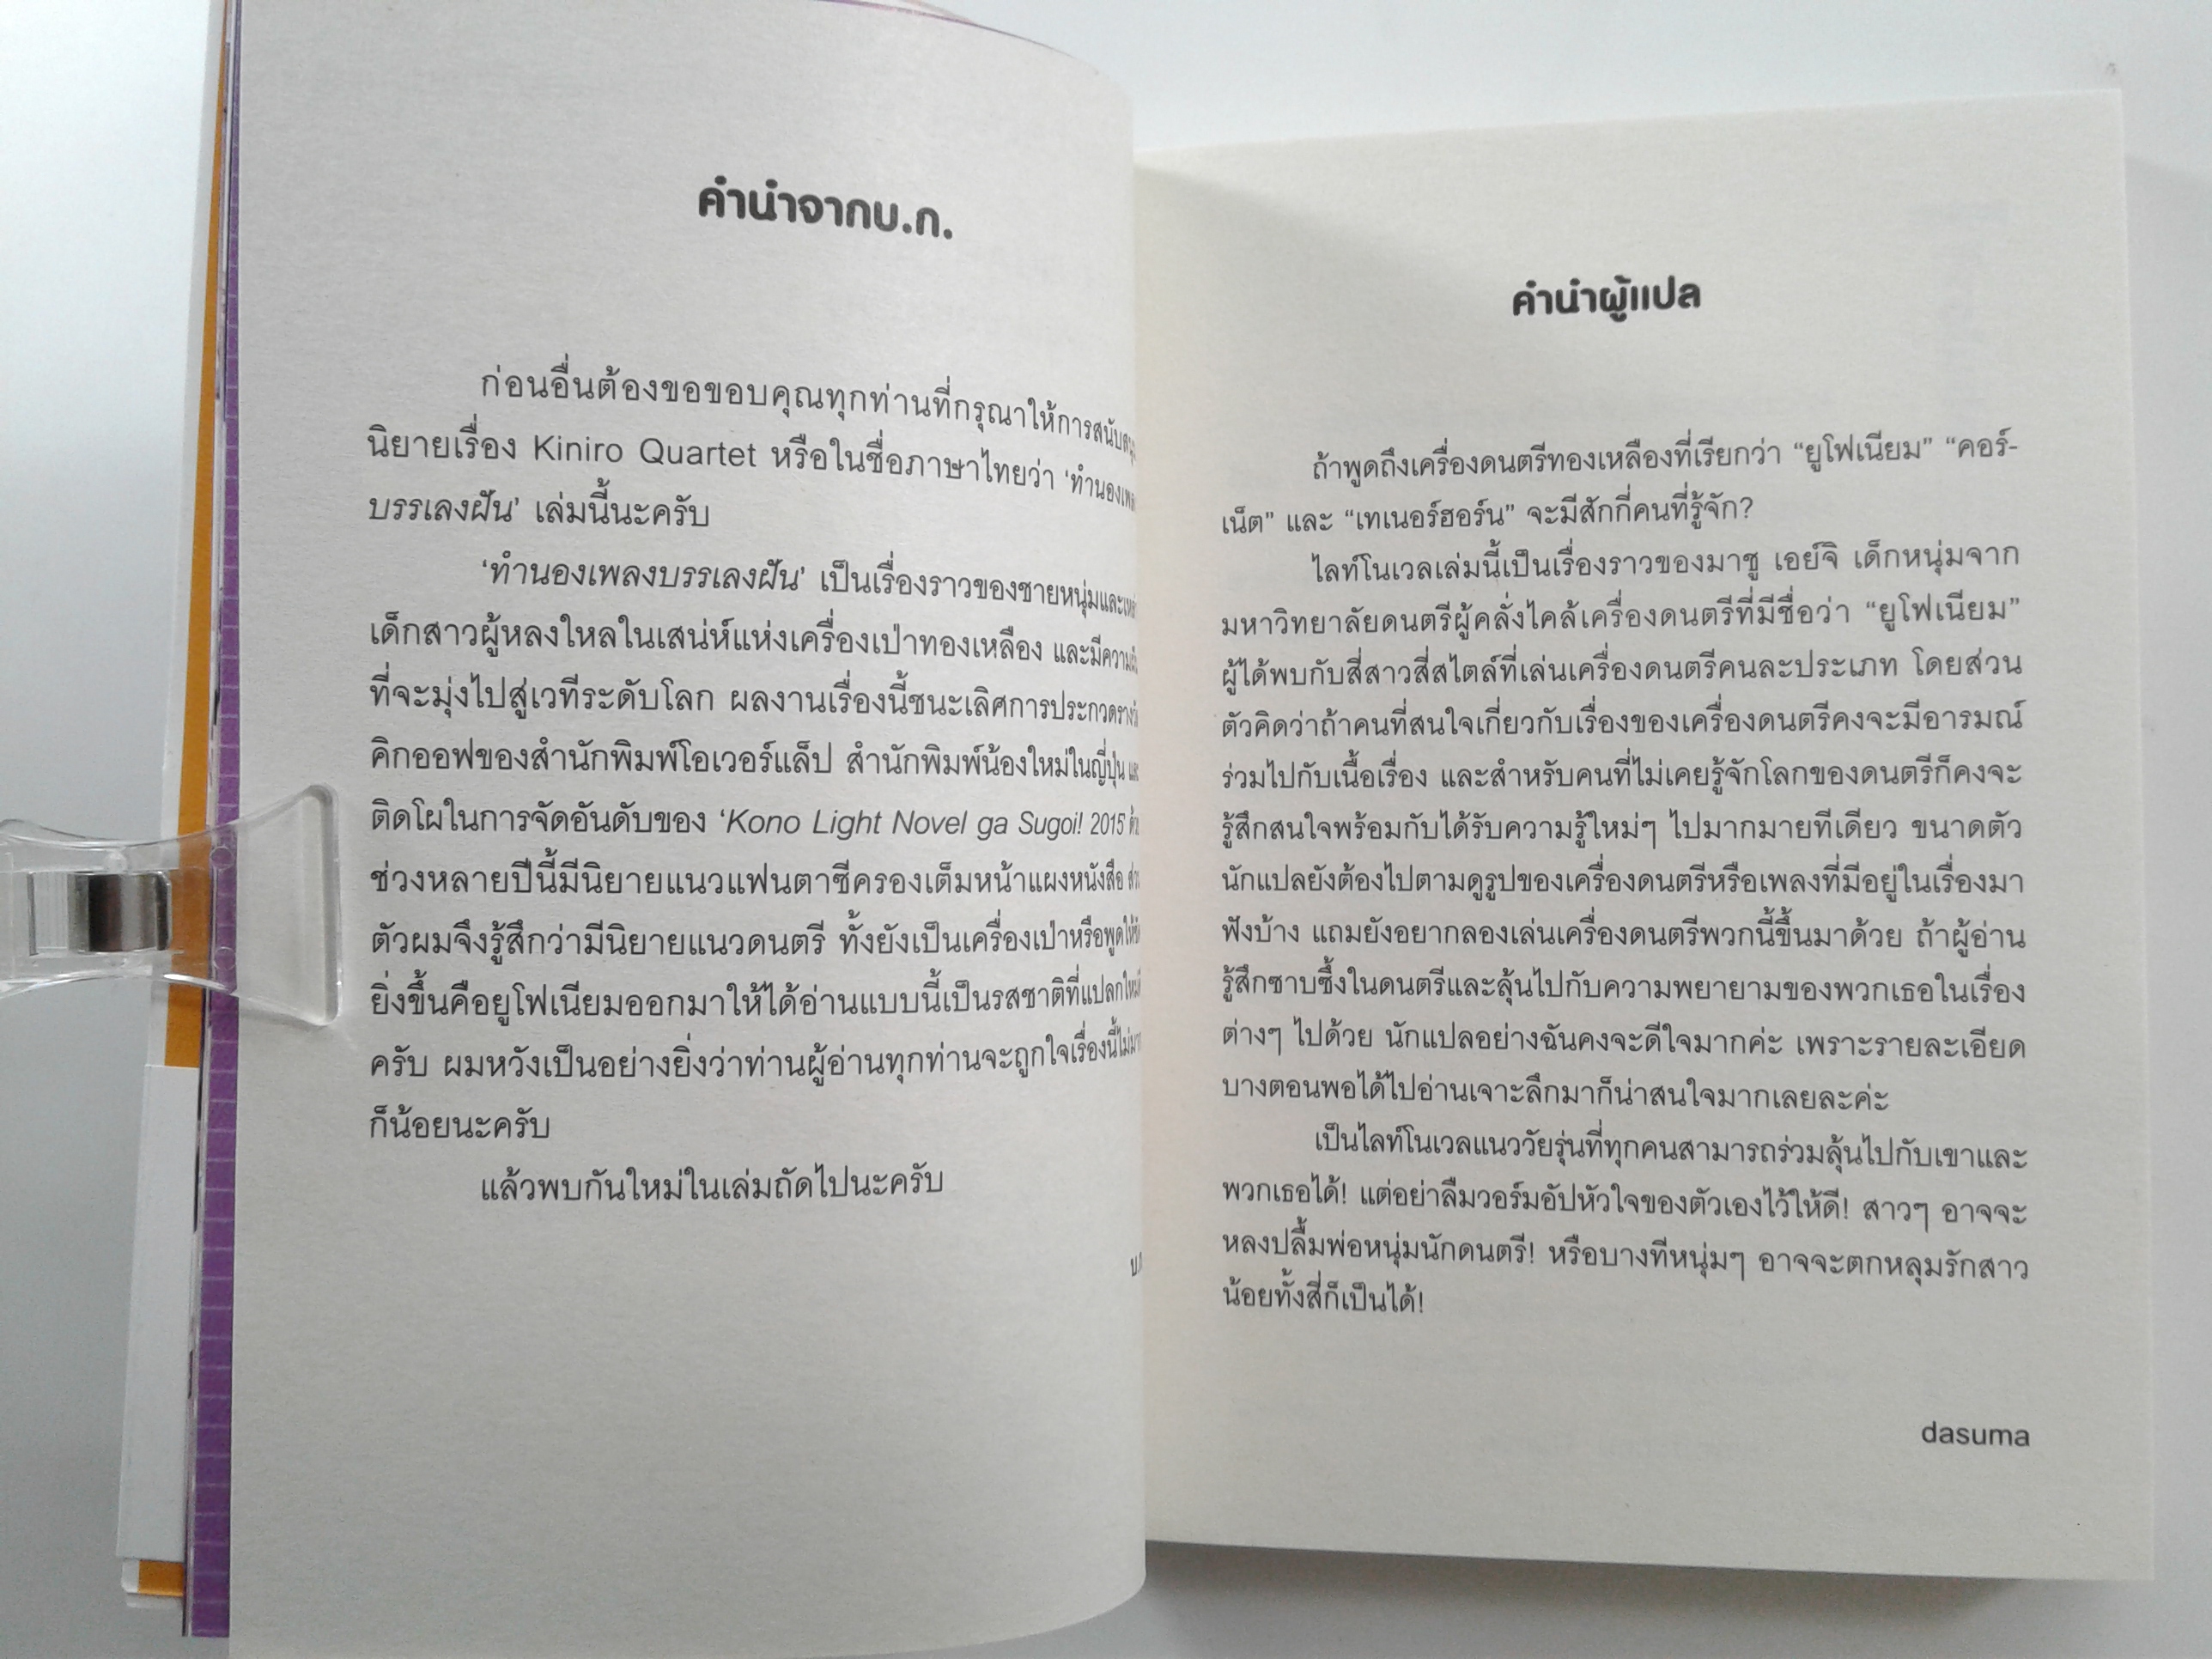 คำนำจากบ.ก.
ก่อนอื่นต้องขอขอบคุณทุกท่านที่กรุณาให้การสนับสนุน
นิยายเรื่อง Kiniro Quartet หรือในชื่อภาษาไทยว่า ‘ทำนองเพลง
บรรเลงฝัน’ เล่มนี้นะครับ
‘ทำนองเพลงบรรเลงฝัน’ เป็นเรื่องราวของชายหนุ่มและเหล่า
เด็กสาวผู้หลงใหลในเสน่ห์แห่งเครื่องเป่าทองเหลือง และมี
ที่จะมุ่งไปสู่เวทีระดับโลก ผลงานเรื่องนี้ชนะเลิศการประกวดรางวัล
คิกออฟของสำนักพิมพ์โอเวอร์แล็ป สำนักพิมพ์น้องใหม่ในญี่ปุ่น และ
ติดโผในการจัดอันดับของ ‘Kono Light Novel ga Sugoi! 2015’ ด้วย
ช่วงหลายปีนี้มีนิยายแนวแฟนตาซีครองเต็มหน้าแผงหนังสือ ส่วน
ตัวผมจึงรู้สึกว่ามีนิยายแนวดนตรี ทั้งยังเป็นเครื่องเป่าหรือพูดให้ชัด
ยิ่งขึ้นคือยูโฟเนียมออกมาให้ได้อ่านแบบนี้เป็นรสชาติที่แปลกใหม่ดี
ครับ ผมหวังเป็นอย่างยิ่งว่าท่านผู้อ่านทุกท่านจะถูกใจเรื่องนี้ไม่มาก
ก็น้อยนะครับ
แล้วพบกันใหม่ในเล่มถัดไปนะครับ
คำนำผู้แปล
ถ้าพูดถึงเครื่องดนตรีทองเหลืองที่เรียกว่า “ยูโฟเนียม” “คอร์-
เน็ต” และ “เทเนอร์ฮอร์น” จะมีสักกี่คนที่รู้จัก?
ไลท์โนเวลเล่มนี้เป็นเรื่องราวของมาชู เอย์จิ เด็กหนุ่มจาก
มหาวิทยาลัยดนตรีผู้คลั่งไคล้เครื่องดนตรีที่มีชื่อว่า “ยูโฟเนียม”
ผู้ได้พบกับสี่สาวสี่สไตล์ที่เล่นเครื่องดนตรีคนละประเภท โดยส่วน
ตัวคิดว่าถ้าคนที่สนใจเกี่ยวกับเรื่องของเครื่องดนตรีคงจะมีอารมณ์
ร่วมไปกับเนื้อเรื่อง และสำหรับคนที่ไม่เคยรู้จักโลกของดนตรีก็คงจะ
รู้สึกสนใจพร้อมกับได้รับความรู้ใหม่ๆ ไปมากมายทีเดียว ขนาดตัว
นักแปลยังต้องไปตามดูรูปของเครื่องดนตรีหรือเพลงที่มีอยู่ในเรื่องมา
ฟังบ้าง แถมยังอยากลองเล่นเครื่องดนตรีพวกนี้ขึ้นมาด้วย ถ้าผู้อ่าน
รู้สึกซาบซึ้งในดนตรีและลุ้นไปกับความพยายามของพวกเธอในเรื่อง
ต่างๆ ไปด้วย นักแปลอย่างฉันคงจะดีใจมากค่ะ เพราะรายละเอียด
บางตอนพอได้ไปอ่านเจาะลึกมาก็น่าสนใจมากเลยละค่ะ
เป็นไลท์โนเวลแนววัยรุ่นที่ทุกคนสามารถร่วมลุ้นไปกับเขาและ
พวกเธอได้! แต่อย่าลืมวอร์มอัปหัวใจของตัวเองไว้ให้ดี! สาวๆ อาจจะ
หลงปลื้มพ่อหนุ่มนักดนตรี! หรือบางทีหนุ่มๆ อาจจะตกหลุมรักสาว
น้อยทั้งสี่ก็เป็นได้!
dasuma